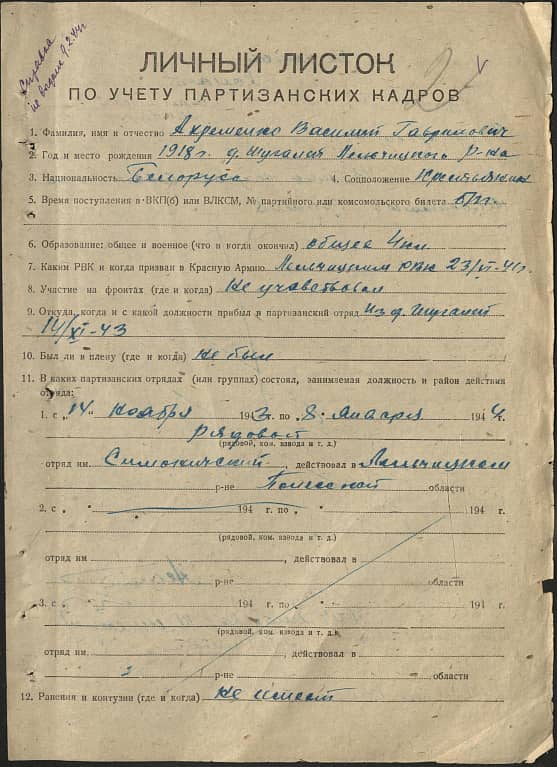 Справка
не выдана 9.2.44г
ЛИЧНЫЙ ЛИСТОК
ПО УЧЕТУ ПАРТИЗАНСКИХ КАДРОВ
1. Фамилия, имя и отчество Ахременко Василий Гаврилович
2. Год и место рождения 1918г. д. Шугалей Лельчицкого р-на
3. Национальность Белорус 4. Соцположение Крестьянин
5. Время поступления в ВКП(б) или ВЛКСМ, № партийного или комсомольского билета б/п.
6. Образование: общее и военное (что и когда окончил) общее 4кл
7. Каким РВК и когда призван в Красную Армию Лельчицким РВК 23/VI-41г.
8. Участие на фронтах (где и когда) Не учавствовал
9. Откуда, когда и с какой должности прибыл в партизанский отряд Из д. Шугалей
14/XI-43
10. Был ли в плену (где и когда) не был
11. В каких партизанских отрядах (или группах) состоял, занимаемая должность и район действия
отряда:
1. с „14" ноября 1943 г. по „8" января 1944 г.
рядовой
(рядовой, ком. взвода и т. д.)
отряд им. , действовал в Лельчицком
р-не Полесской области
2. с „ " 194 г. по „ " 194 г.
(рядовой, ком. взвода и т. д.)
отряд им , действовал в
р-не области
3. с „ " 194 г. по „ " 194 г.
(рядовой, ком. взвода и т. д.)
отряд им. , действовал в
р-не области
12. Ранения и контузии (где и когда) не имеет